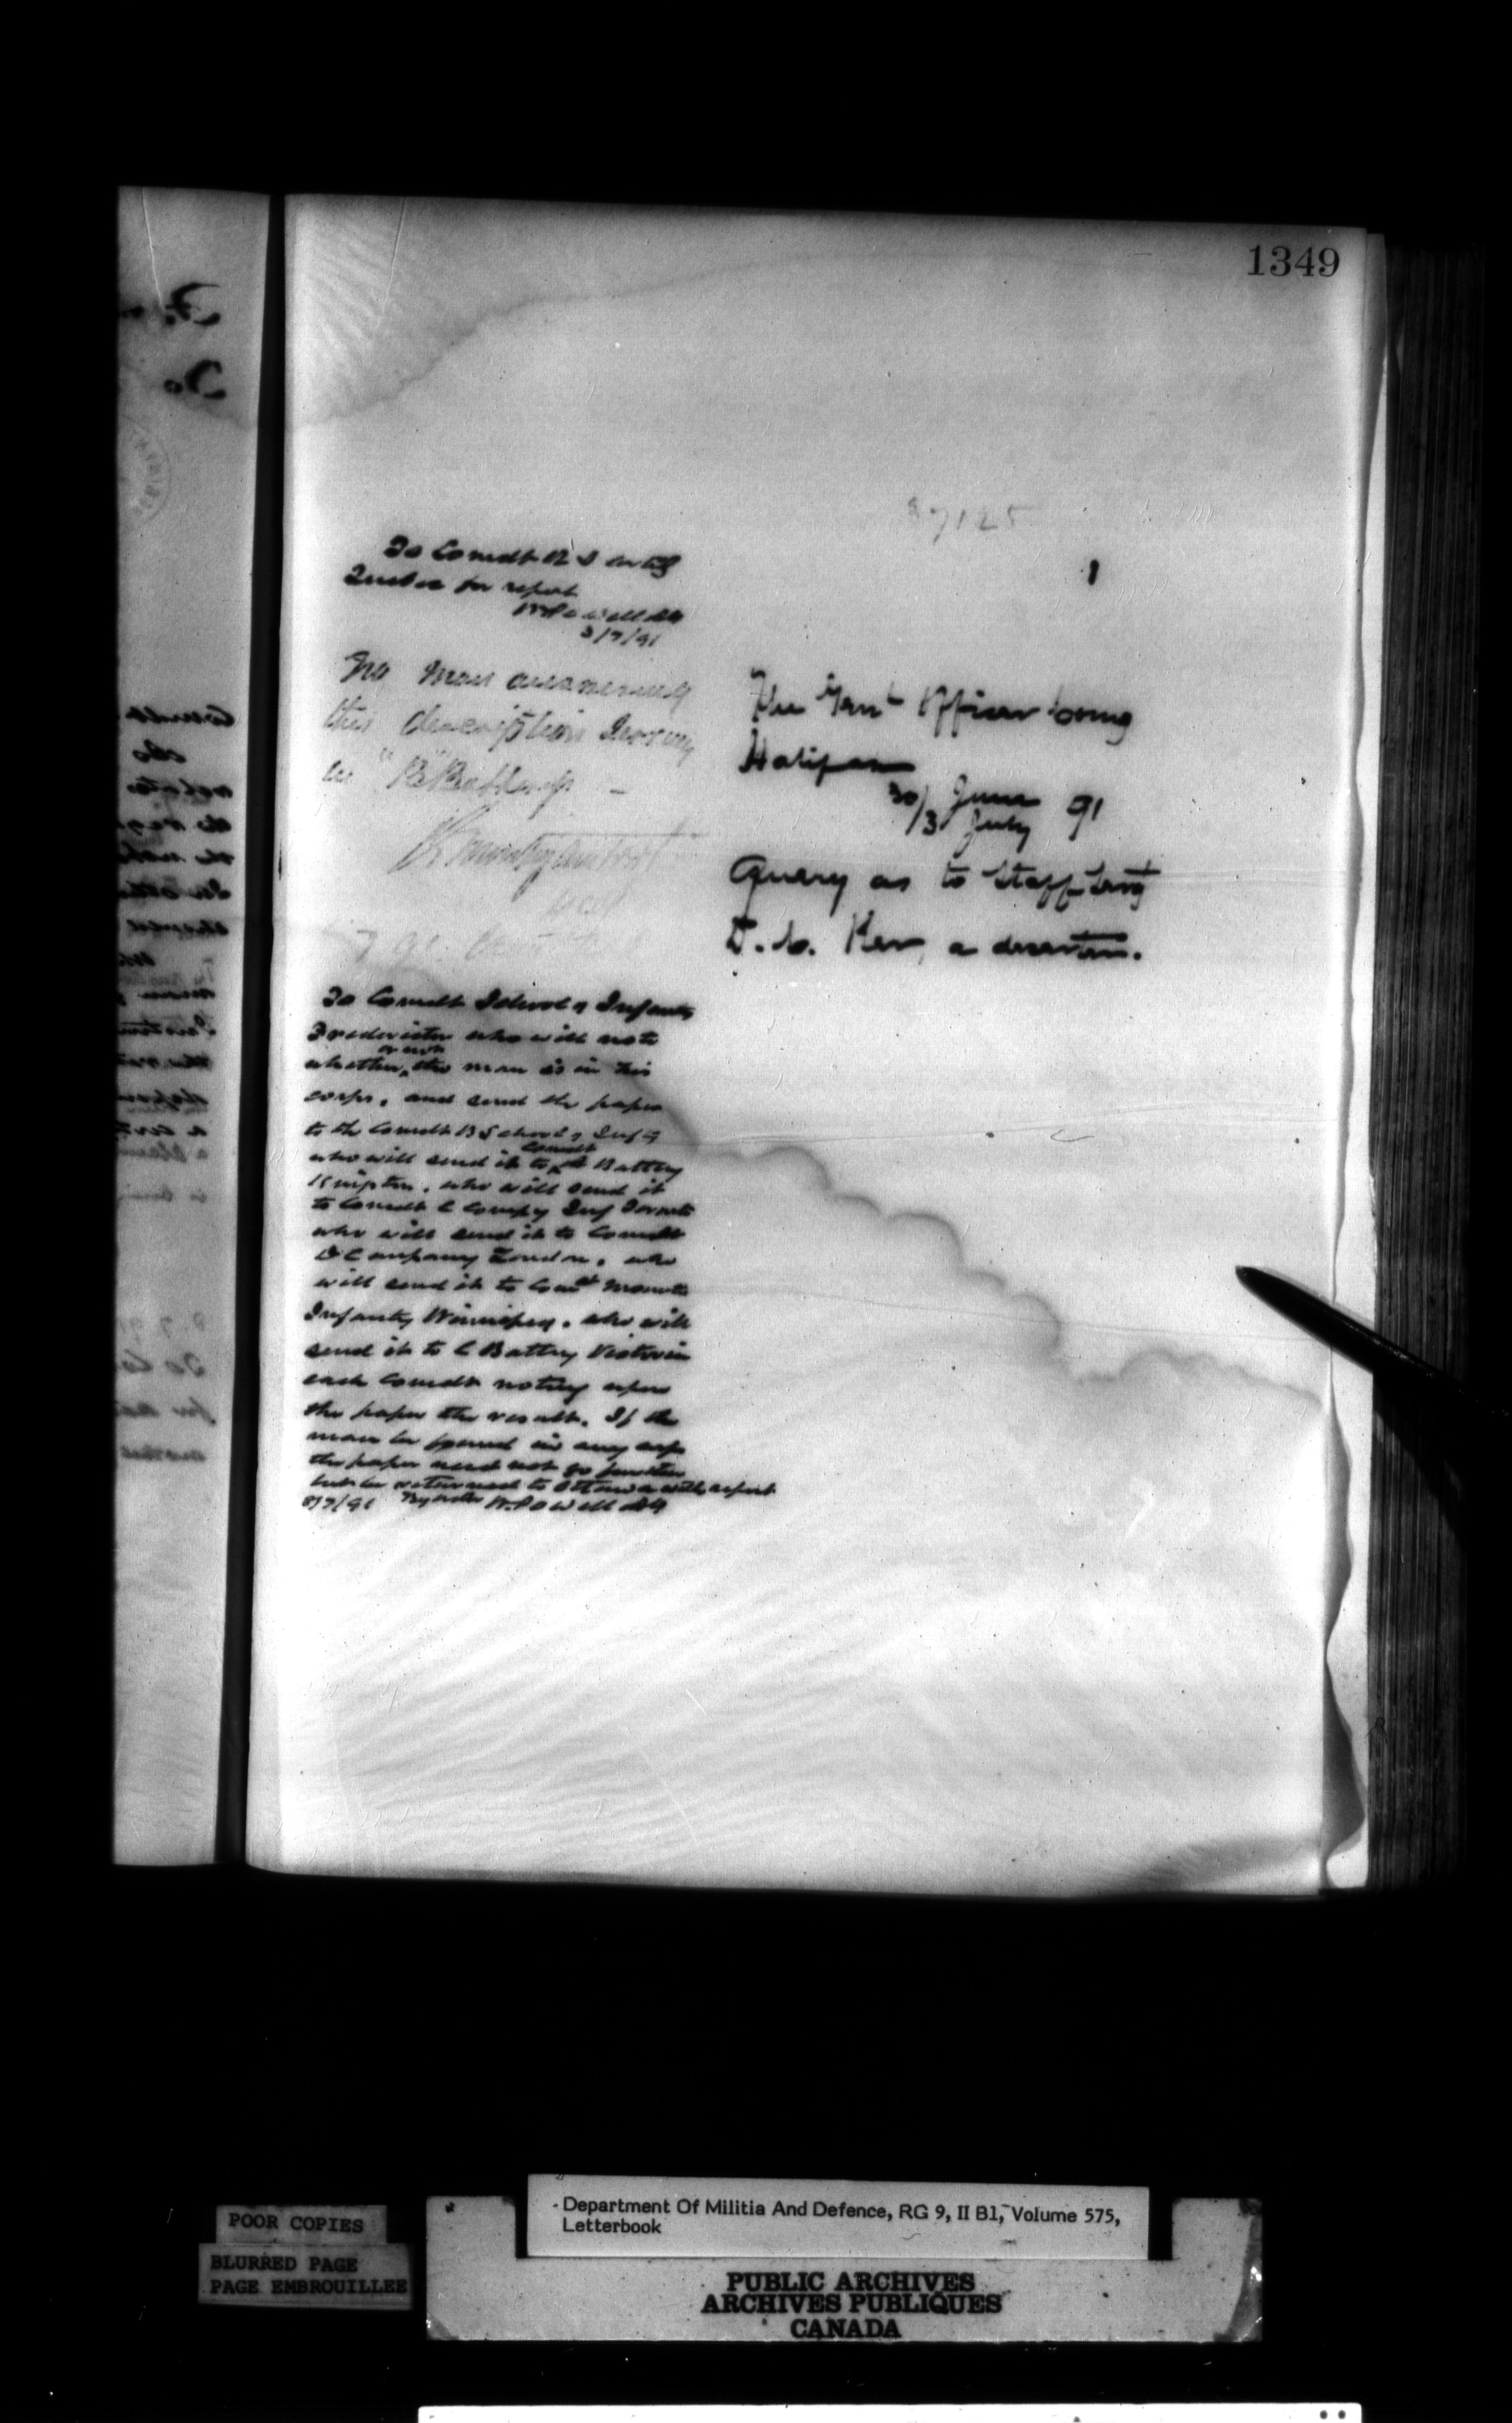 1349
To Comdt R S Arty
Quebec for report
W Powell AG
3/7/91
No man answering
this description serving
in "B" Battery -
7
To Comdt School of Infantry
Fredericton who will note
whether or not the man is in his
corps, and send the paper
to the Comdt B School of Infty
who will send it to Comdt A Battery
Kingston, who will send it
to Comdt C Company Inf Toronto
who will send it to Comdt
D Company London, who
will send it to Comdt Mounted
Infantry Winnipeg, who will
send it to C Battery Victoria
each Comdt noting upon
the paper the result. If the
man be found in any corps
the paper need not go further
but be returned to Ottawa with report
8/7/91 By order W. Powell AG
7125
1
The Genl Officer Comg
Halifax
30/3 June July 91
Query as to Staff Sergt
D. C. Ker, a deserter.
POOR COPIES
BLURRED PAGE
PAGE EMBROUILLEE
Department Of Militia And Defence, RG 9, II B1, Volume 575,
Letterbook
PUBLIC ARCHIVES
ARCHIVES PUBLIQUES
CANADA